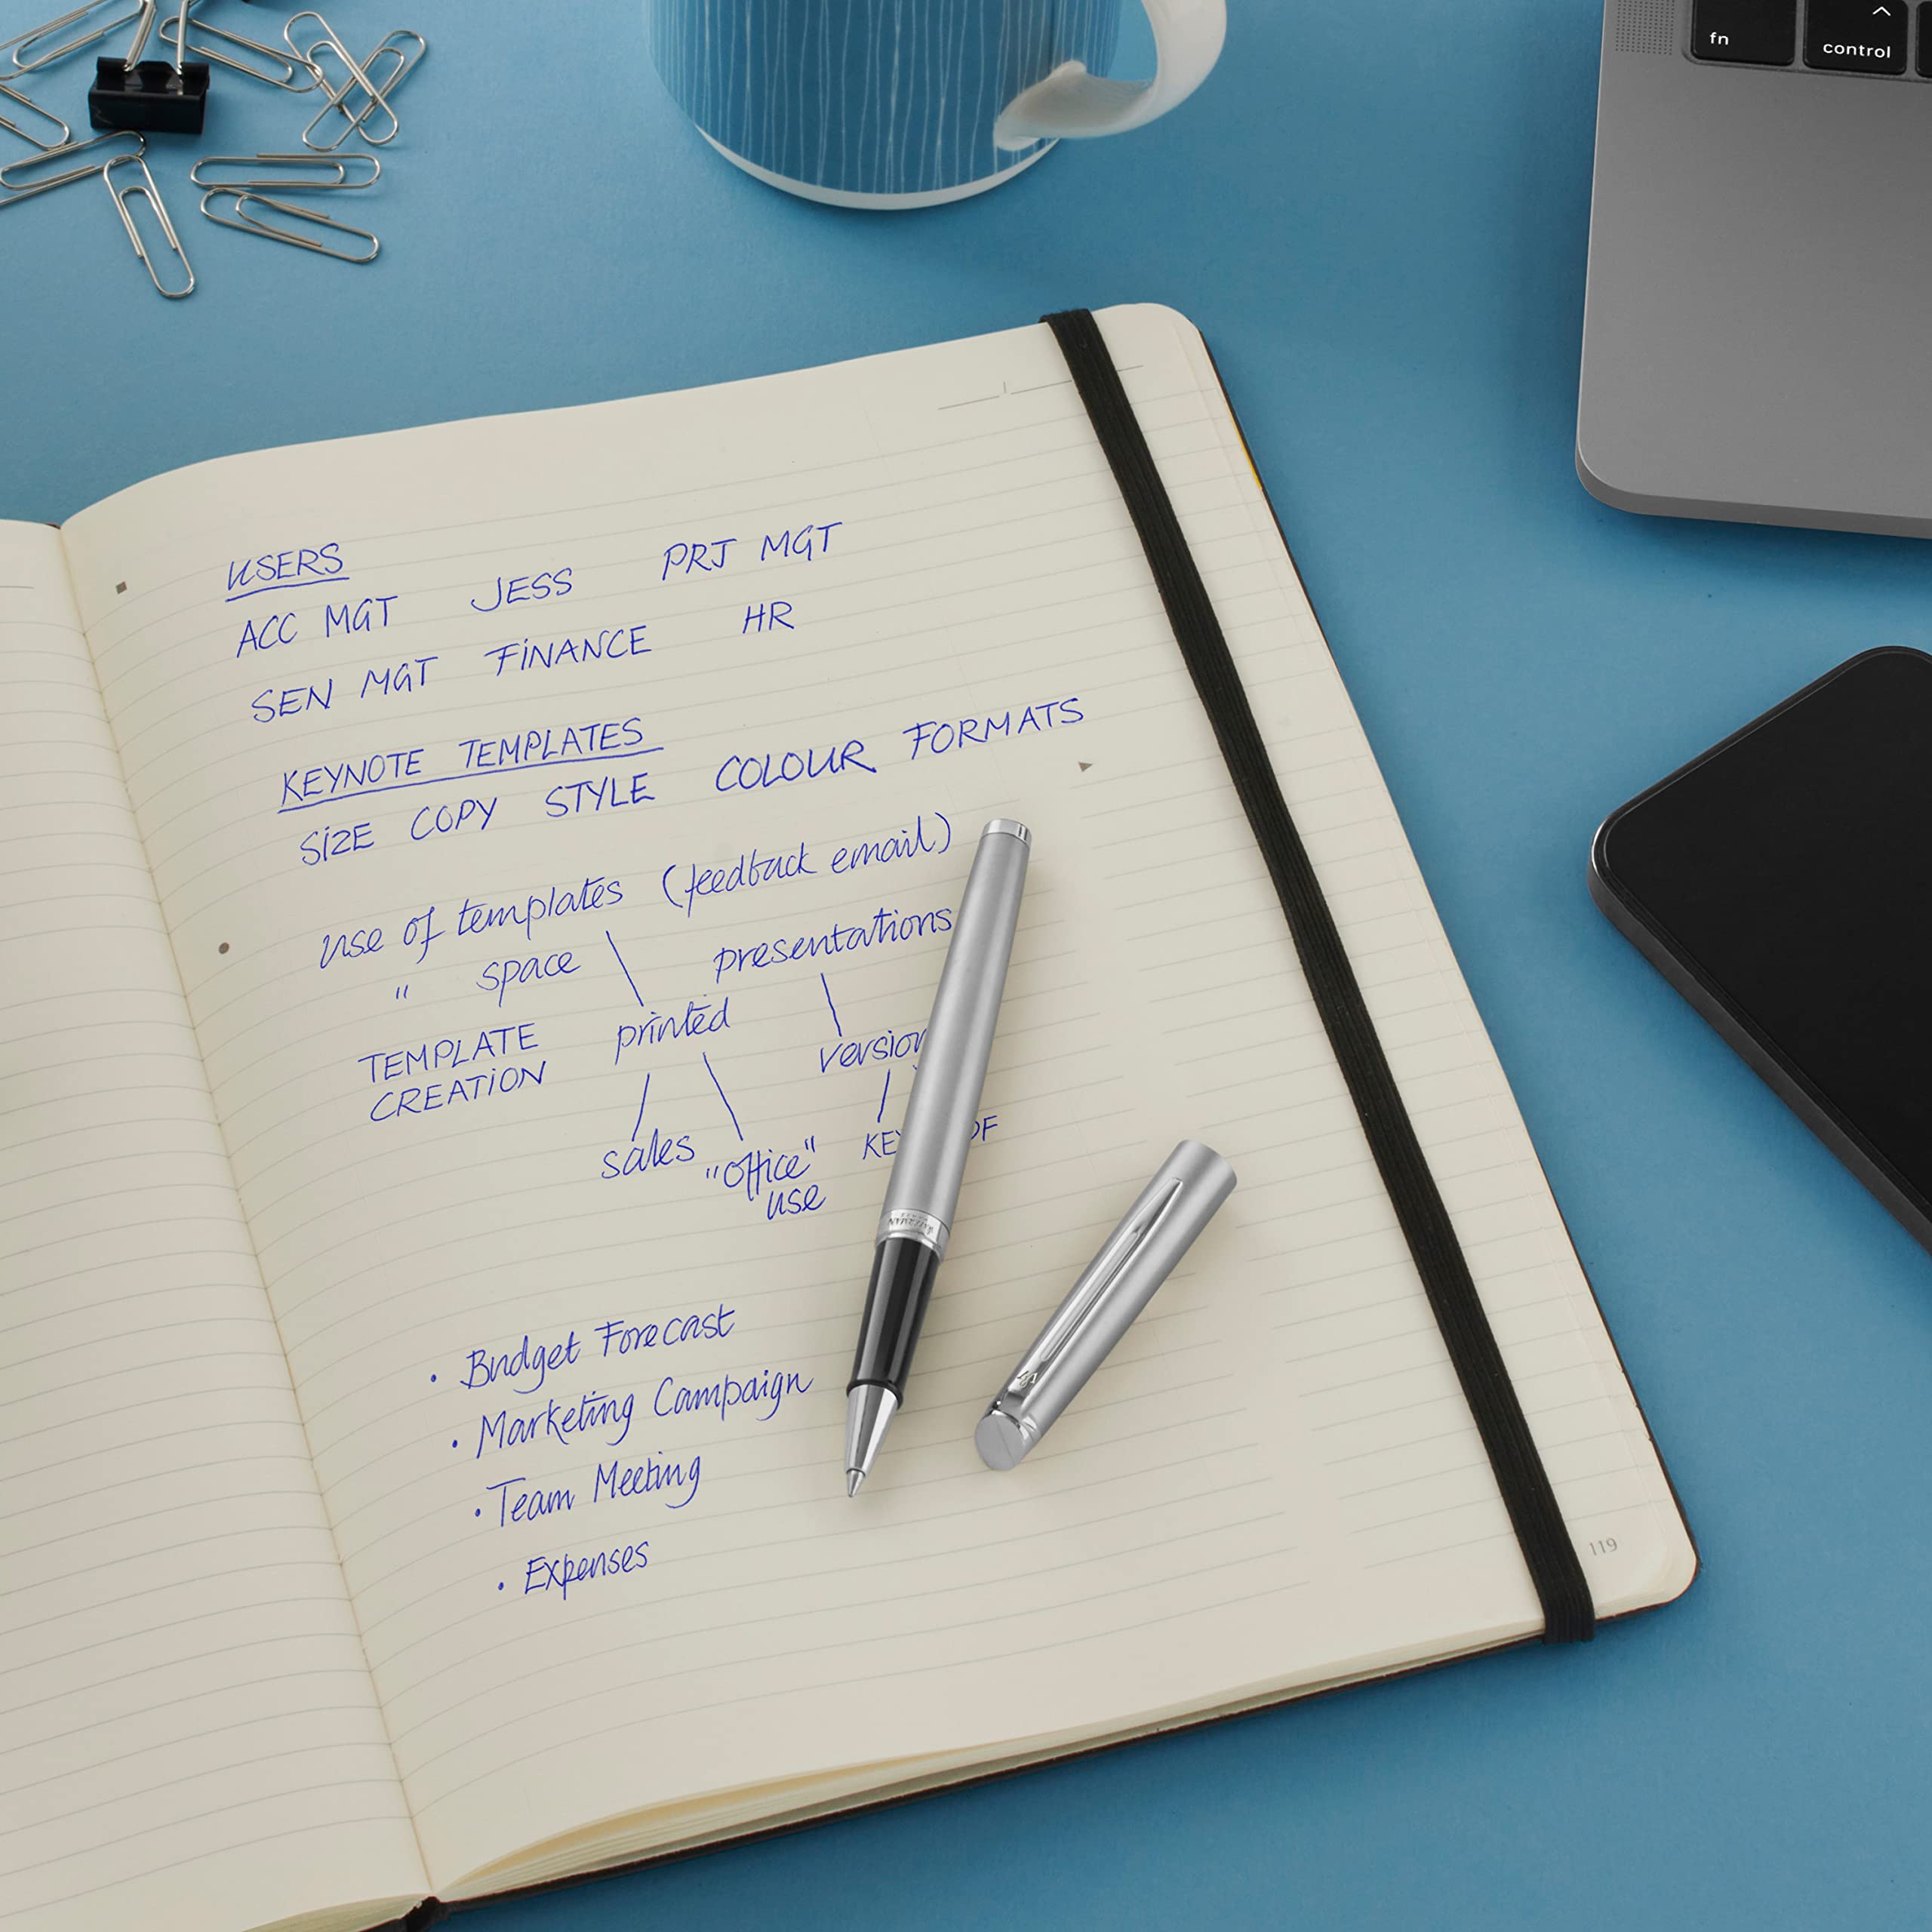 fn
control
USERS
ACC MGT JESS PRJ MGT
SEN MGT FINANCE HR
KEYNOTE TEMPLATES
SIZE COPY STYLE COLOUR FORMATS
use of templates (feedback email)
" space presentations
TEMPLATE printed version
CREATION
sales "office" KE DF
use
• Budget Forecast
• Marketing Campaign
• Team Meeting
• Expenses
WATERMAN
119